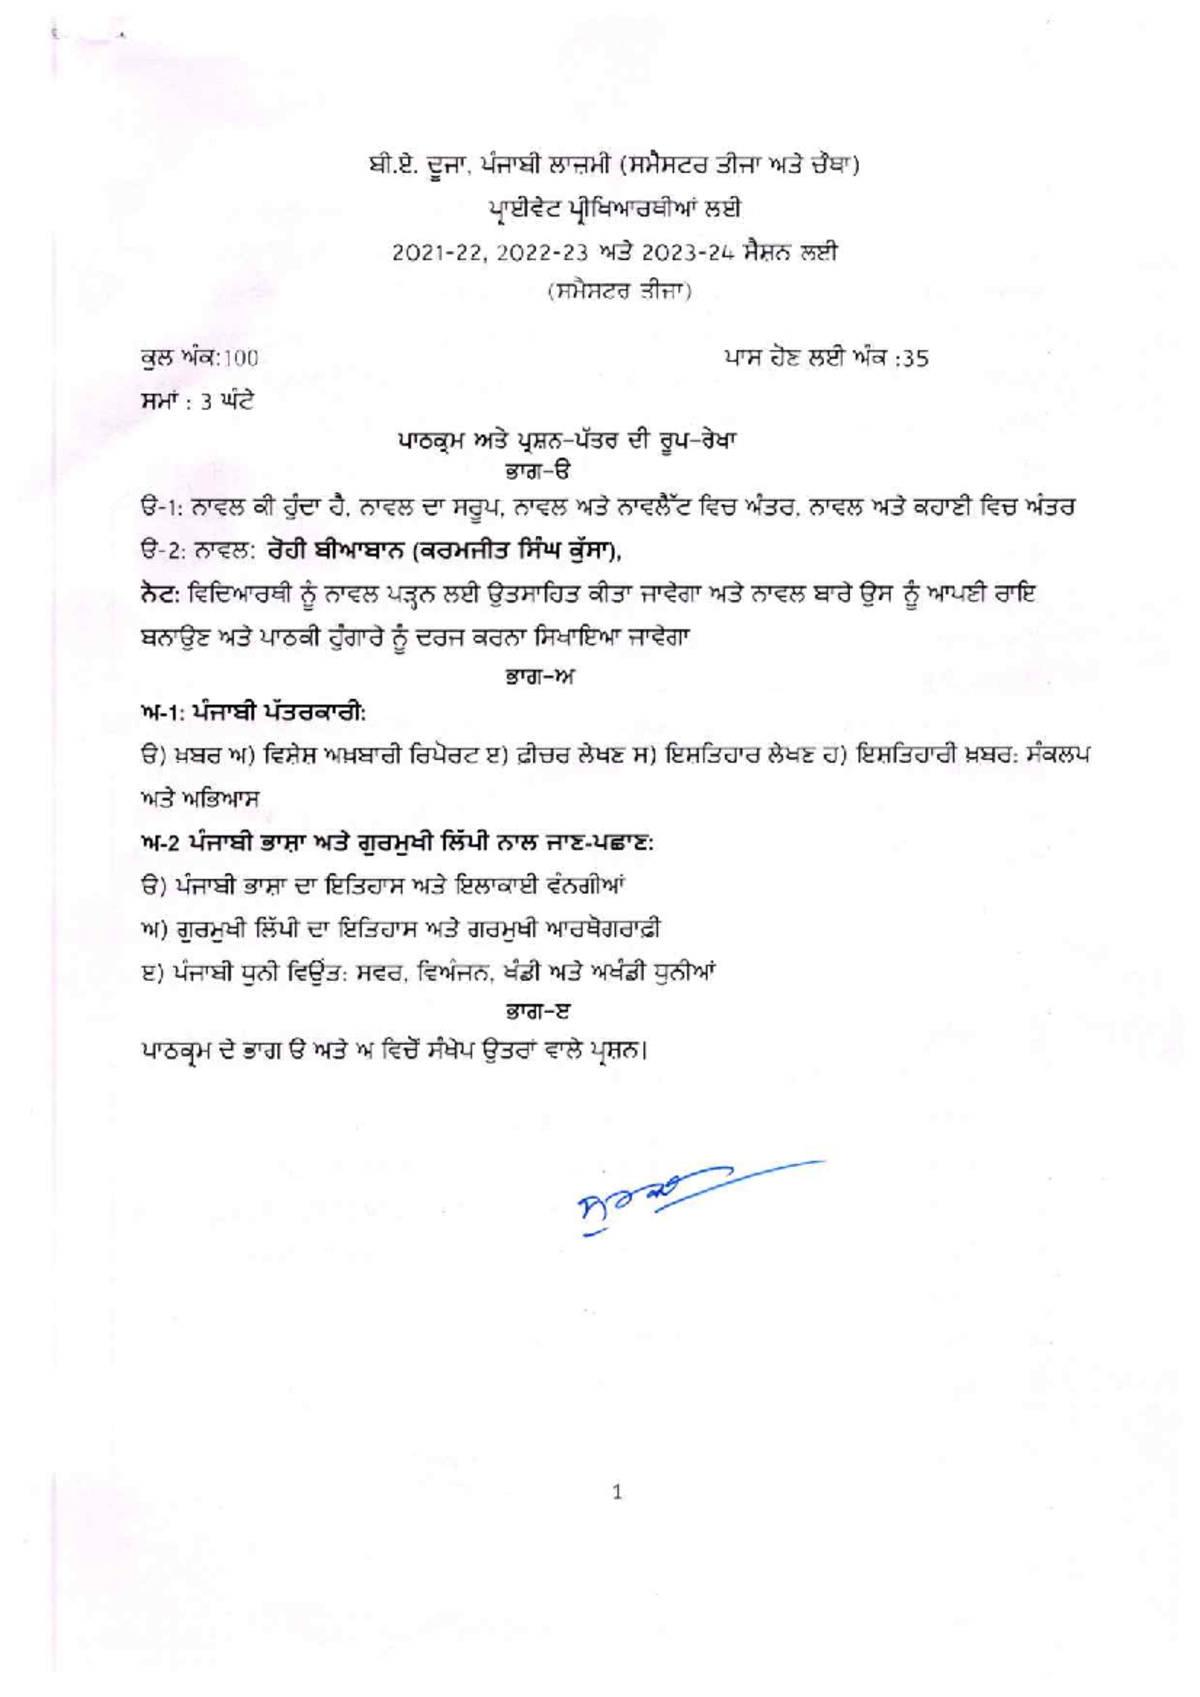 ਬੀ.ਏ. ਦੂਜਾ, ਪੰਜਾਬੀ ਲਾਜ਼ਮੀ (ਸਮੈਸਟਰ ਤੀਜਾ ਅਤੇ ਚੌਥਾ)
ਪ੍ਰਾਈਵੇਟ ਪ੍ਰੀਖਿਆਰਥੀਆਂ ਲਈ
2021-22, 2022-23 ਅਤੇ 2023-24 ਸੈਸ਼ਨ ਲਈ
(ਸਮੈਸਟਰ ਤੀਜਾ)
ਕੁਲ ਅੰਕ:100 ਪਾਸ ਹੋਣ ਲਈ ਅੰਕ :35
ਸਮਾਂ : 3 ਘੰਟੇ
ਪਾਠਕ੍ਰਮ ਅਤੇ ਪ੍ਰਸ਼ਨ-ਪੱਤਰ ਦੀ ਰੂਪ-ਰੇਖਾ
ਭਾਗ-ੳ
ੳ-1: ਨਾਵਲ ਕੀ ਹੁੰਦਾ ਹੈ, ਨਾਵਲ ਦਾ ਸਰੂਪ, ਨਾਵਲ ਅਤੇ ਨਾਵਲੈੱਟ ਵਿਚ ਅੰਤਰ, ਨਾਵਲ ਅਤੇ ਕਹਾਣੀ ਵਿਚ ਅੰਤਰ
ੳ-2: ਨਾਵਲ: ਰੋਹੀ ਬੀਆਬਾਨ (ਕਰਮਜੀਤ ਸਿੰਘ ਕੁੱਸਾ),
ਨੋਟ: ਵਿਦਿਆਰਥੀ ਨੂੰ ਨਾਵਲ ਪੜ੍ਹਨ ਲਈ ਉਤਸਾਹਿਤ ਕੀਤਾ ਜਾਵੇਗਾ ਅਤੇ ਨਾਵਲ ਬਾਰੇ ਉਸ ਨੂੰ ਆਪਣੀ ਰਾਇ
ਬਨਾਉਣ ਅਤੇ ਪਾਠਕੀ ਹੁੰਗਾਰੇ ਨੂੰ ਦਰਜ ਕਰਨਾ ਸਿਖਾਇਆ ਜਾਵੇਗਾ
ਭਾਗ-ਅ
ਅ-1: ਪੰਜਾਬੀ ਪੱਤਰਕਾਰੀ:
ੳ) ਖ਼ਬਰ ਅ) ਵਿਸ਼ੇਸ਼ ਅਖ਼ਬਾਰੀ ਰਿਪੋਰਟ ੲ) ਫ਼ੀਚਰ ਲੇਖਣ ਸ) ਇਸ਼ਤਿਹਾਰ ਲੇਖਣ ਹ) ਇਸ਼ਤਿਹਾਰੀ ਖ਼ਬਰ: ਸੰਕਲਪ
ਅਤੇ ਅਭਿਆਸ
ਅ-2 ਪੰਜਾਬੀ ਭਾਸ਼ਾ ਅਤੇ ਗੁਰਮੁਖੀ ਲਿੱਪੀ ਨਾਲ ਜਾਣ-ਪਛਾਣ:
ੳ) ਪੰਜਾਬੀ ਭਾਸ਼ਾ ਦਾ ਇਤਿਹਾਸ ਅਤੇ ਇਲਾਕਾਈ ਵੰਨਗੀਆਂ
ਅ) ਗੁਰਮੁਖੀ ਲਿੱਪੀ ਦਾ ਇਤਿਹਾਸ ਅਤੇ ਗਰਮੁਖੀ ਆਰਥੋਗਰਾਫ਼ੀ
ੲ) ਪੰਜਾਬੀ ਧੁਨੀ ਵਿਉਂਤ: ਸਵਰ, ਵਿਅੰਜਨ, ਖੰਡੀ ਅਤੇ ਅਖੰਡੀ ਧੁਨੀਆਂ
ਭਾਗ-ੲ
ਪਾਠਕ੍ਰਮ ਦੇ ਭਾਗ ੳ ਅਤੇ ਅ ਵਿਚੋਂ ਸੰਖੇਪ ਉਤਰਾਂ ਵਾਲੇ ਪ੍ਰਸ਼ਨ।
1